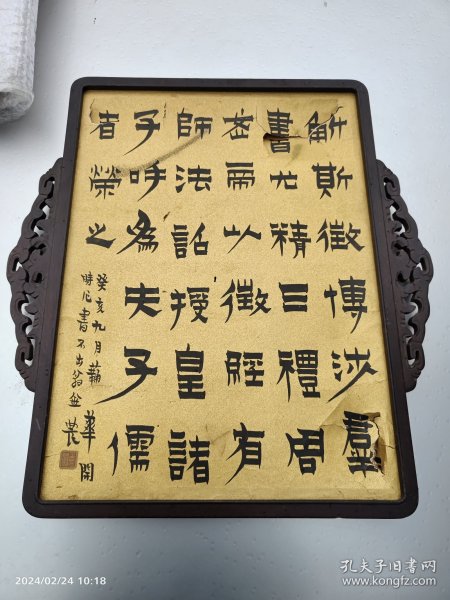 斛斯徵博涉羣
書尤精三禮周
武帝以徵經有
師法詔授皇諸
子呼為夫子儒
者榮之
癸亥九月華開
時心書不出翁農
2024/02/24 10:18
孔夫子旧书网
www.kongfz.com